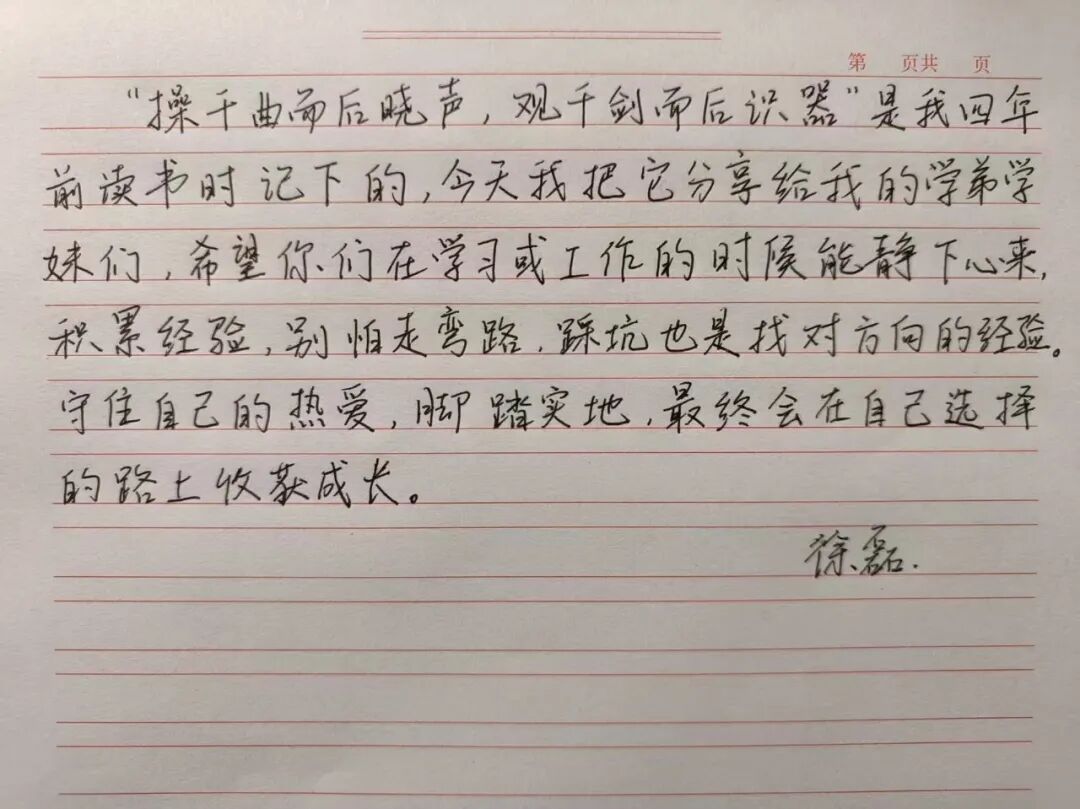 第 页共 页
“操千曲而后晓声，观千剑而后识器”是我四年
前读书时记下的，今天我把它分享给我的学弟学
妹们，希望你们在学习或工作的时候能静下心来，
积累经验，别怕走弯路，踩坑也是找对方向的经验。
守住自己的热爱，脚踏实地，最终会在自己选择
的路上收获成长。
徐磊.